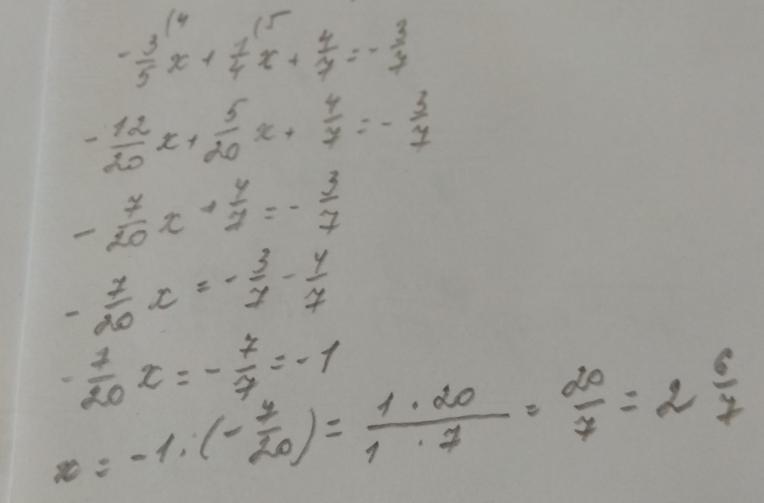 -3/5 (4 x + 1/4 (5 x + 4/7 = -3/7
-12/20 x + 5/20 x + 4/7 = -3/7
-7/20 x + 4/7 = -3/7
-7/20 x = -3/7 - 4/7
-7/20 x = -7/7 = -1
x = -1 : (-7/20) = 1 · 20 / 1 · 7 = 20/7 = 2 6/7